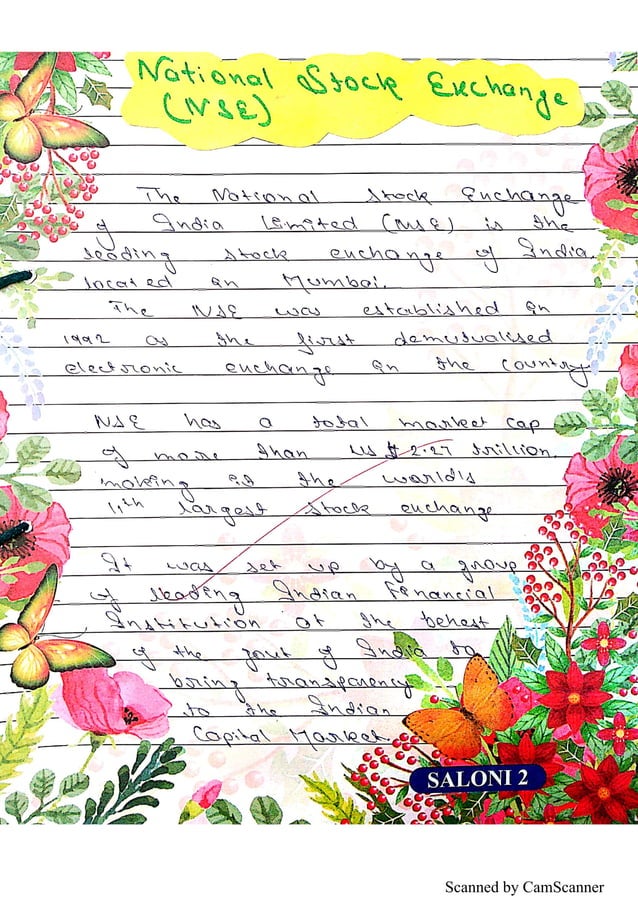 National Stock Exchange
(NSE)
The National Stock Exchange
of India Limited (NSE) is the
leading stock exchange of India,
located in Mumbai.
The NSE was established in
1992 as the first demutualised
electronic exchange in the country
NSE has a total market cap
of more than US $ 2.27 trillion,
making it the world's
11th largest stock exchange
It was set up by a group
of leading Indian Financial
Institution at the behest
of the govt of India to
bring transparency
to the Indian
Capital Market.
SALONI 2
Scanned by CamScanner